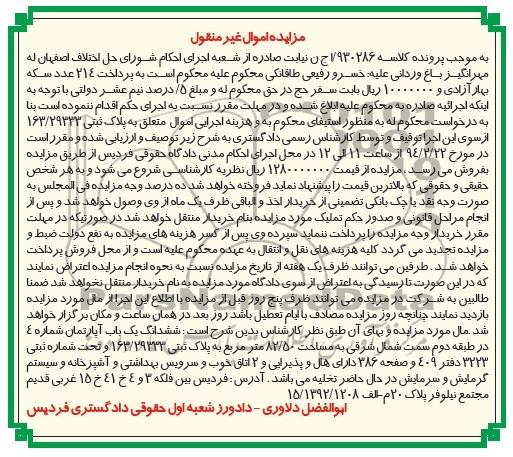 مزایده اموال غیر منقول
به موجب پرونده کلاسه ۹۳۰۲۸۶/اج ن نیابت صادره از شعبه اجرای احکام شورای حل اختلاف اصفهان له
مهرانگیز باغ وردانی علیه: خسرو رفیعی طاقانکی محکوم علیه محکوم است به پرداخت ۲۱۴ عدد سکه
بهار آزادی و ۱۰۰۰۰۰۰۰ ریال بابت سفر حج در حق محکوم له و مبلغ ۵/ درصد نیم عشر دولتی با توجه به
اینکه اجرائیه صادره به محکوم علیه ابلاغ شده و در مهلت مقرر نسبت به اجرای حکم اقدام ننموده است بنا
به درخواست محکوم له به منظور استیفای محکوم به و هزینه اجرایی اموال متعلق به پلاک ثبتی ۱۶۳/۲۹۳۳۳
از سوی این اجرا توقیف و توسط کارشناس رسمی دادگستری به شرح زیر توصیف و ارزیابی شده و مقرر است
در مورخ ۹۴/۲/۲۲ از ساعت ۱۱ الی ۱۲ در محل اجرای احکام مدنی دادگاه حقوقی فردیس از طریق مزایده
بفروش می رسد. مزایده از قیمت ۱۲۸۰۰۰۰۰۰۰ ریال نظریه کارشناسی شروع می شود و به هر شخص
حقیقی و حقوقی که بالاترین قیمت را پیشنهاد نماید فروخته خواهد شد ده درصد وجه مزایده فی المجلس به
صورت وجه نقد یا چک بانکی تضمینی از خریدار اخذ و الباقی ظرف یک ماه از وی وصول خواهد شد و پس از
انجام مراحل قانونی و صدور حکم تملیک مورد مزایده بنام خریدار منتقل خواهد شد در صورتیکه در مهلت
مقرر خریدار وجه مزایده را پرداخت ننماید سپرده وی پس از کسر هزینه های مزایده به نفع دولت ضبط و
مزایده تجدید می گردد کلیه هزینه های نقل و انتقال به عهده محکوم علیه است و از محل فروش پرداخت
خواهد شد. طرفین می توانند ظرف یک هفته از تاریخ مزایده نسبت به نحوه انجام مزایده اعتراض نمایند
که در این صورت تا رسیدگی به اعتراض از سوی دادگاه مورد مزایده به نام خریدار منتقل نخواهد شد ضمنا
طالبین به شرکت در مزایده می توانند ظرف پنج روز قبل از مزایده با اطلاع این اجرا از مال مورد مزایده
بازدید نمایند چنانچه روز مزایده مصادف با ایام تعطیل باشد روز بعد در همان ساعت و مکان برگزار خواهد
شد. مال مورد مزایده و بهای آن طبق نظر کارشناس بدین شرح است: ششدانگ یک باب آپارتمان شماره ۴
در طبقه دوم سمت شمال شرقی به مساحت ۸۲/۵۰ متر مربع به پلاک ثبتی ۱۶۳/۲۹۳۳۳ و تحت شماره ثبتی
۳۲۲۳ دفتر ۴۰۹ و صفحه ۳۸۶ دارای هال و پذیرایی و ۲ اتاق خوب و سرویس بهداشتی و آشپزخانه و سیستم
گرمایش و سرمایش در حال حاضر تخلیه می باشد. آدرس: فردیس بین فلکه ۳ و ۴ خ ۴۱ خ ۱۵ غربی قدیم
مجتمع نیلوفر پلاک ۲۰ م-الف ۱۵/۱۳۹۲/۱۲۰۸
ابوالفضل دلاوری – دادورز شعبه اول حقوقی دادگستری فردیس